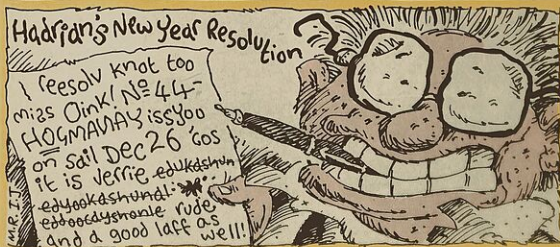 Hadrian's New Year Resolution
I reesolv knot too
miss Oink! No 44-
HOGMANAY issyoo
on sail Dec 26 'cos
it is verrie edukashun
edyookashundl
eddoocdyshonle rude
and a good laff as
well!
M.R.I.